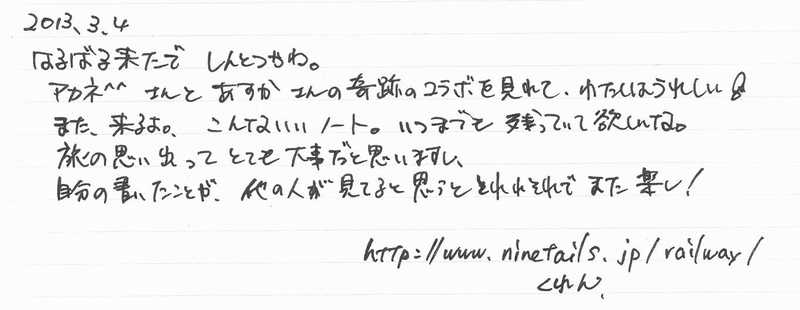 2013、3、4
はるばる来たで しんとつかわ。
アカネ^^ さんと あすか さんの 奇跡のコラボを見れて、わたしはうれしい
また、来るよ。 こんないいノート。いつまでも 残っていて欲しいな。
旅の思い出って とても 大事だと思いますし、
自分の書いたことが、他の人が見てると思うと それはそれで また楽し!
http://www.ninetails.jp/railway/
くれん、